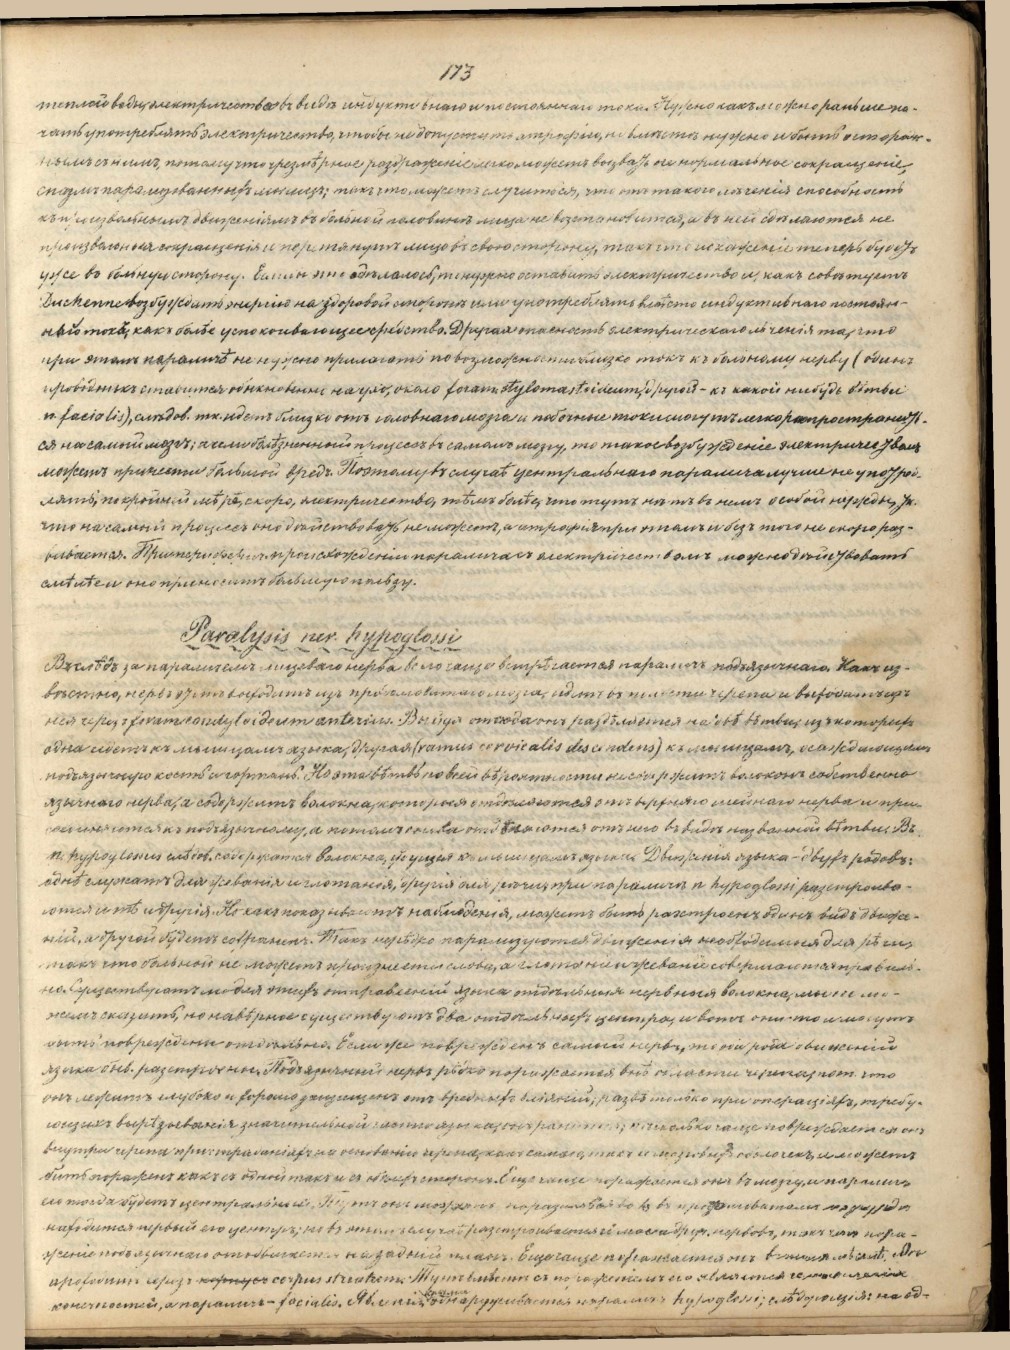 173
теплой воды, электричество въ видѣ индуктивнаго и постояннаго тока. Нужно какъ можно раньше на-
чать употреблять электричество, чтобы не допустить атрофію, но вмѣстѣ нужно и быть осторож-
нымъ съ нимъ, потому что чрезмѣрное раздраженіе легко можетъ вызвать не нормальное сокращеніе,
спазмъ парализованныхъ мышцъ; такъ что можетъ случиться, что отъ такого лѣченія способность
къ произвольнымъ движеніямъ въ больной половинѣ лица не возстановится, а въ ней сдѣлаются не
произвольныя сокращенія и перетянутъ лицо въ свою сторону, такъ что искаженіе теперь будетъ
уже въ больную сторону. Если это сдѣлалось, то нужно оставить электричество и, какъ совѣтуетъ
Duchenne возбуждать энергію на здоровой сторонѣ или употреблять вмѣсто индуктивнаго постоян-
ный токъ, какъ болѣе успокоивающее средство. Другая опасность электрическаго лѣченія та, что
при этомъ параличѣ не нужно прилагать по возможности близко токъ къ больному нерву (одинъ
проводникъ ставится обыкновенно на ухо, около foram. stylomastoideum, другой – къ какой нибудь вѣтви
n. facialis), слѣдов. ток идетъ близко отъ головнаго мозга и побочные токи могутъ легко распространять-
ся на самый мозгъ; а если болѣзненный процессъ въ самомъ мозгу, то такое возбужденіе электричествомъ
можетъ принести большой вредъ. Поэтому въ случаѣ центральнаго паралича лучше не употреб-
лять, по крайней мѣрѣ, скоро, электричество, тѣмъ болѣе, что тутъ нѣтъ въ немъ особой нужды,
что на самый процессъ оно дѣйствовать не можетъ, а атрофія при этомъ и безъ того не скоро раз-
вивается. При периферич. происхожденіи паралича съ электричествомъ можно дѣйствовать
смѣлѣе и оно приноситъ большую пользу.
Paralysis ner. hypoglossi
Въ слѣдъ за параличемъ лицеваго нерва всего чаще встрѣчается параличъ подъязычнаго. Какъ из-
вѣстно, нервъ этотъ выходитъ изъ продолговатаго мозга, идетъ въ полости черепа и выходитъ изъ
нея чрезъ foram condyloideum anterius. Выйдя отсюда онъ раздѣляется на двѣ вѣтви, изъ которыхъ
одна идетъ къ мышцамъ языка, другая (ramus cervicalis descendens) къ мышцамъ, осаждающимъ
подъязычную кость и гортань. Но эта вѣтвь по всей вѣроятности не содержитъ волоконъ собственно
язычнаго нерва, а содержитъ волокна, которыя отдѣляются отъ верхняго шейнаго нерва и при-
соединяются къ подъязычному, а потомъ снова отдѣляются отъ него въ видѣ названной вѣтви. Въ
n. hypoglossus слѣдов. содержатся волокна, идущія къ мышцамъ языка. Движенія языка – двухъ родовъ:
однѣ служатъ для жеванія и глотанія, другія для рѣчи; при параличѣ n hypoglossi разстроива-
ются и тѣ и другія. Но какъ показываютъ наблюденія, можетъ быть разстроенъ одинъ видъ движе-
ній, а другой будетъ сохраненъ. Такъ нерѣдко парализуются движенія необходимыя для рѣчи,
такъ что больной не можетъ произнести слова, а глотаніе и жеваніе совершаются правиль-
но. Существуютъ ли для этихъ отправленій языка отдѣльныя нервныя волокна, мы не мо-
жемъ сказать, но навѣрное существуютъ два отдѣльныхъ центра, и вотъ они-то и могутъ
быть повреждены отдѣльно. Если же поврежденъ самый нервъ, то оба рода движеній
языка быв. разстроены. Подъязычный нервъ рѣдко поражается внѣ полости черепа, пот. что
онъ лежитъ глубоко и хорошо защищенъ отъ вредныхъ вліяній; развѣ только при операціяхъ, требу-
ющихъ вырѣзыванія значительной части языка, онъ раняется; нѣсколько чаще повреждается онъ
внутри черепа при страданіяхъ на основаніи черепа, какъ самаго, такъ и мозговыхъ оболочекъ, и можетъ
быть пораженъ какъ съ одной такъ и съ обѣихъ сторонъ. Еще чаще поражается онъ въ мозгу, и параличъ
его тогда будетъ центральный. Тутъ онъ можетъ поражаться въ продолговатомъ мозгу, гдѣ
находится первый его центръ; но въ этомъ случаѣ разстроивается и масса друг. нервовъ, такъ что пора-
женіе подъязычнаго отодвигается на задній планъ. Еще чаще поражается онъ въ
проходитъ чрезъ corpus striatum. Тутъ вмѣстѣ съ пораженіемъ его является
конечностей, и параличъ – facialis. Явленія, какими обнаруживается параличъ hypoglossi, слѣдующія: на од-